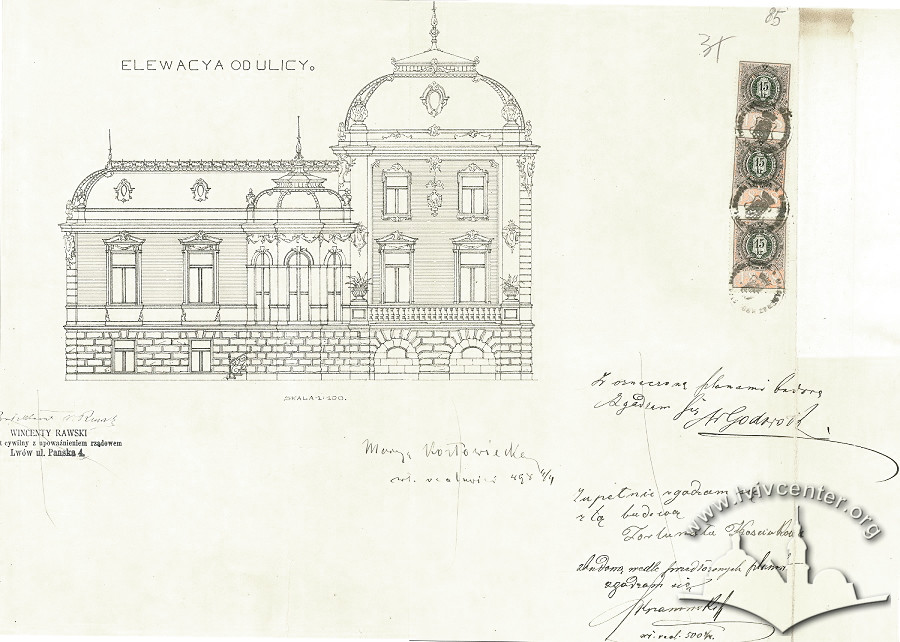 85
ELEWACYA OD ULICY.
15
15
15
SKALA 1:100.
WINCENTY RAWSKI
cywilny z upoważnieniem rządowem
Lwów ul. Pańska 4.
Marya Kozłowiecka
wł. realności 498 4/4
Z oznaczoną planami budową
zgadzam się
Zupełnie zgadzam się
z tą budową
Fortunata
z budową wedle przedłożonych planów
zgadzam się
wł. real. 500 4/4
www.lvivcenter.org